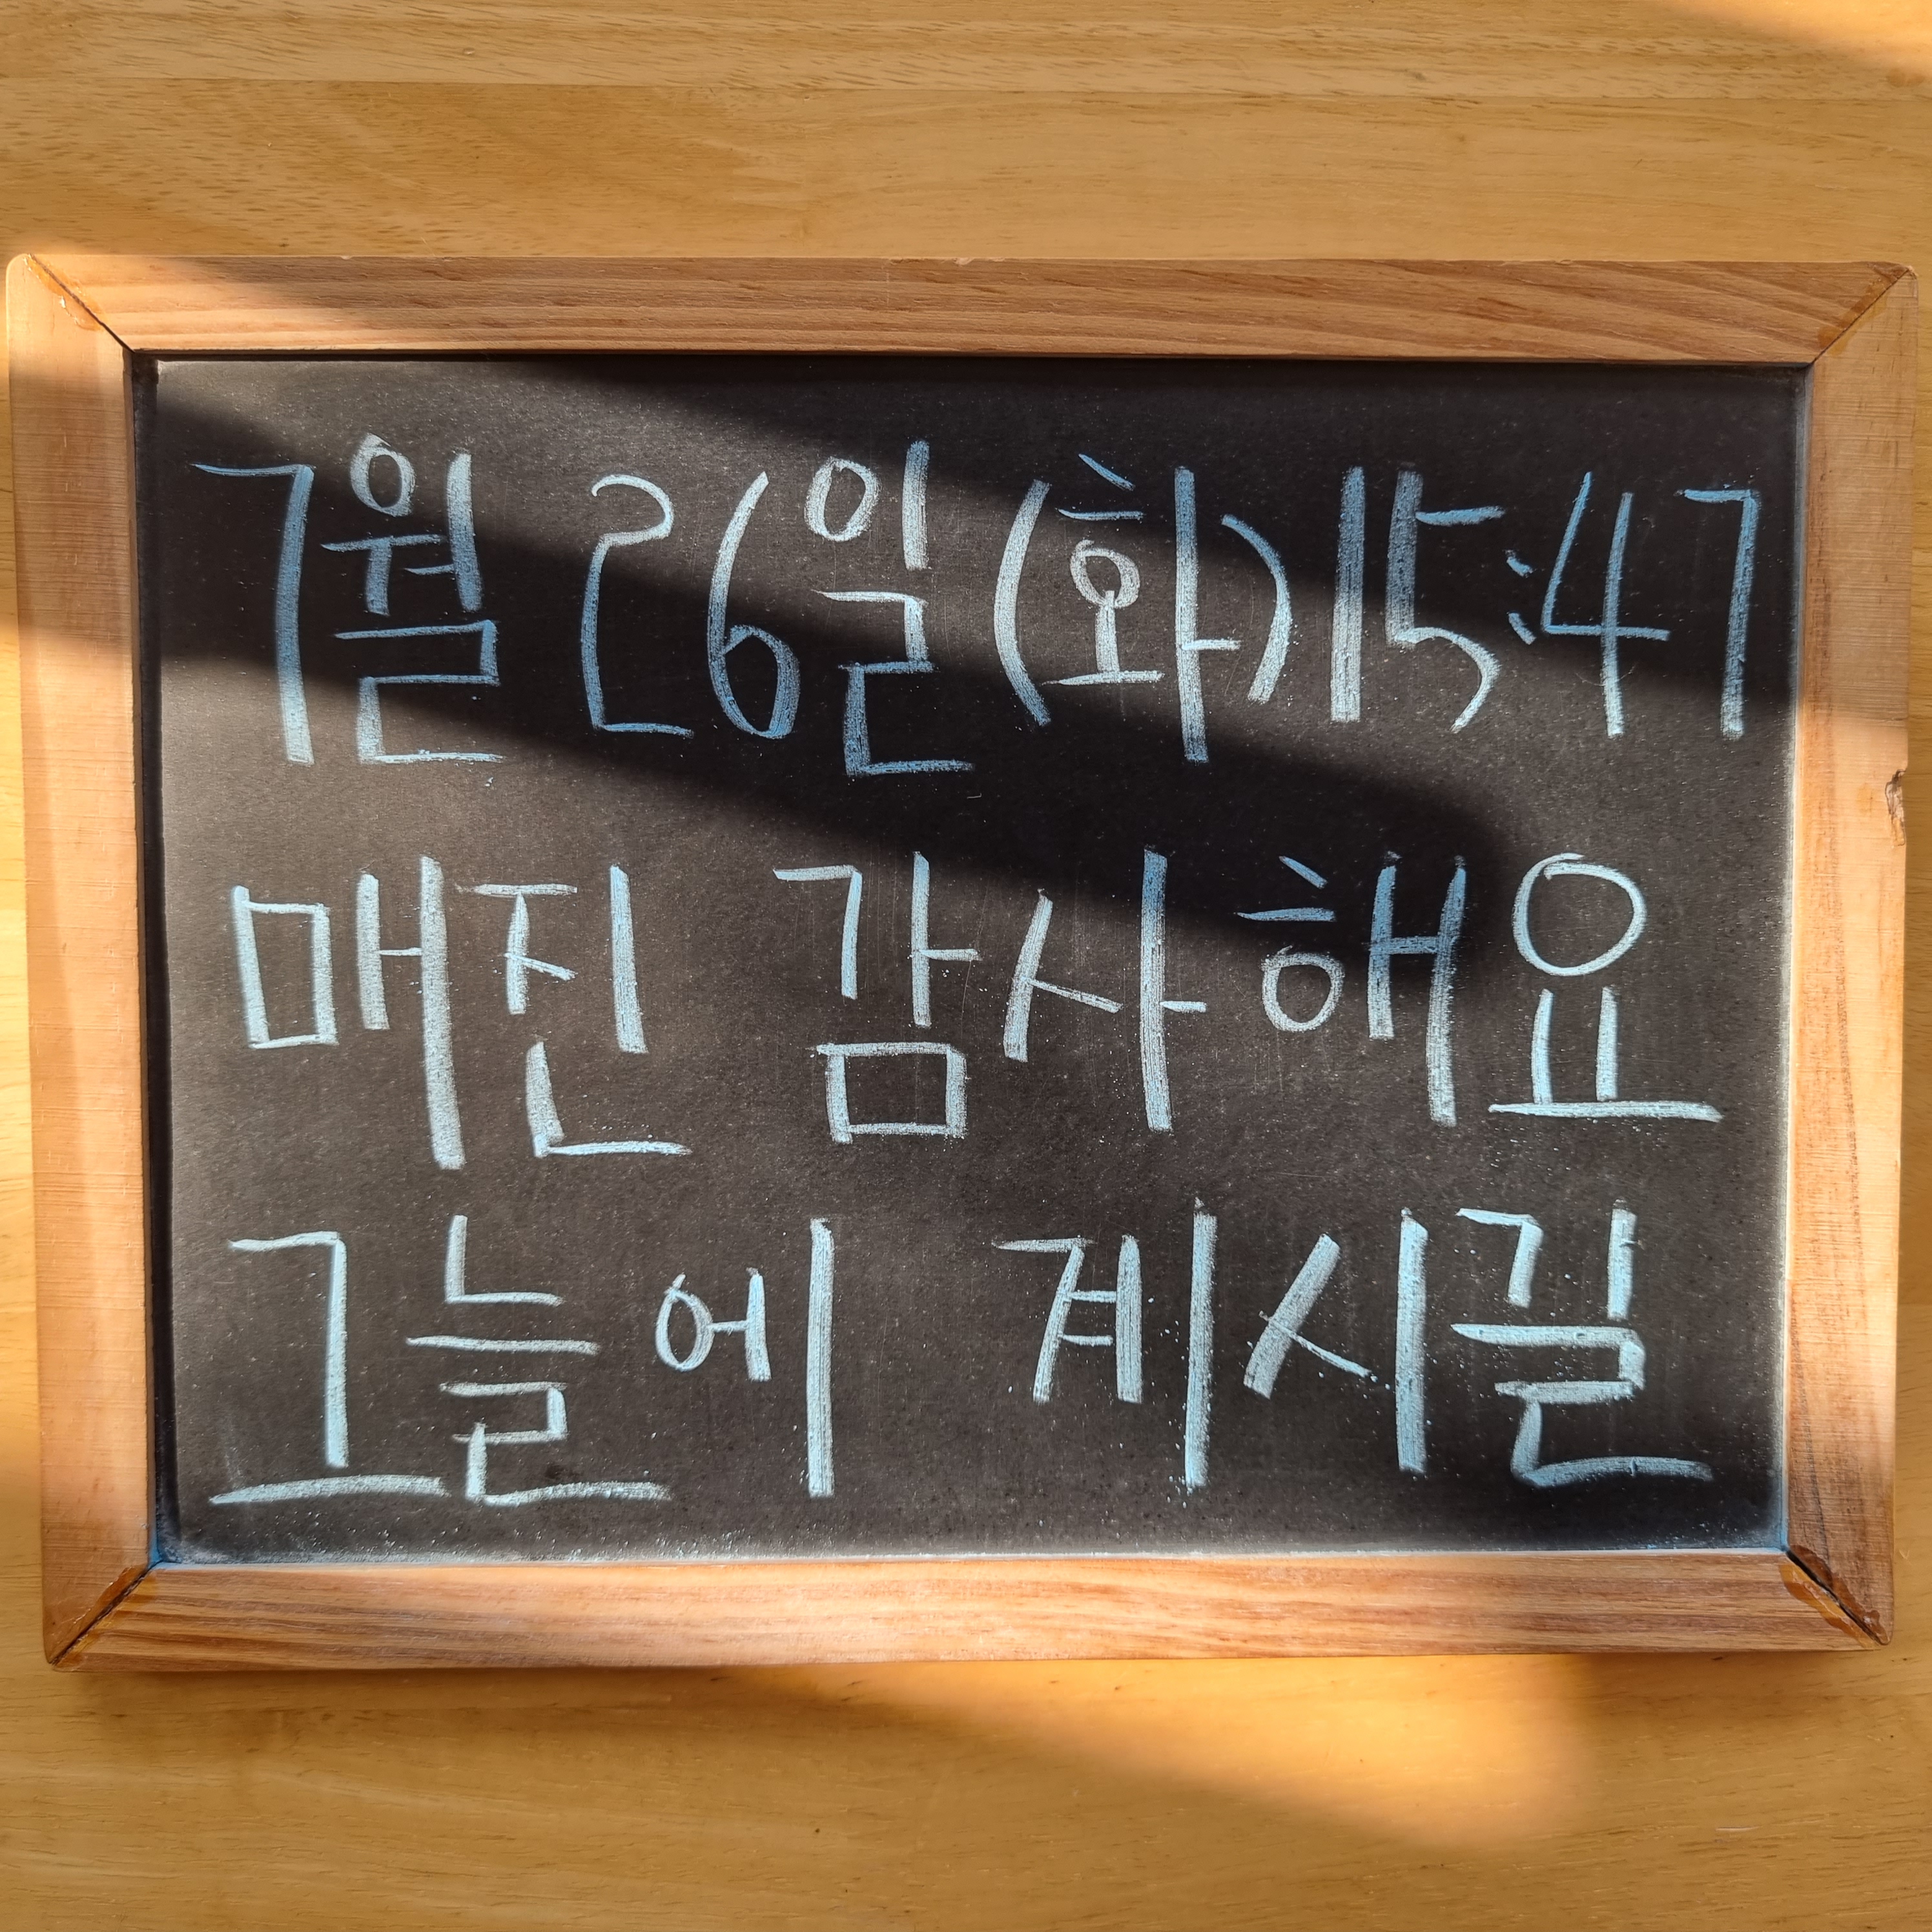 7월 26일(화)15:47
매진 감사해요
그늘에 계시길